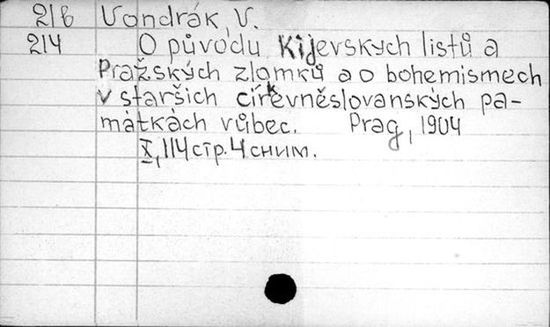 21б Vondrák, V.
214 O původu Kijevských listů a
Pražských zlomků a o bohemismech
v starších církevněslovanských pa-
mátkách vůbec. Prag, 1904
X, 114 стр. 4 сним.